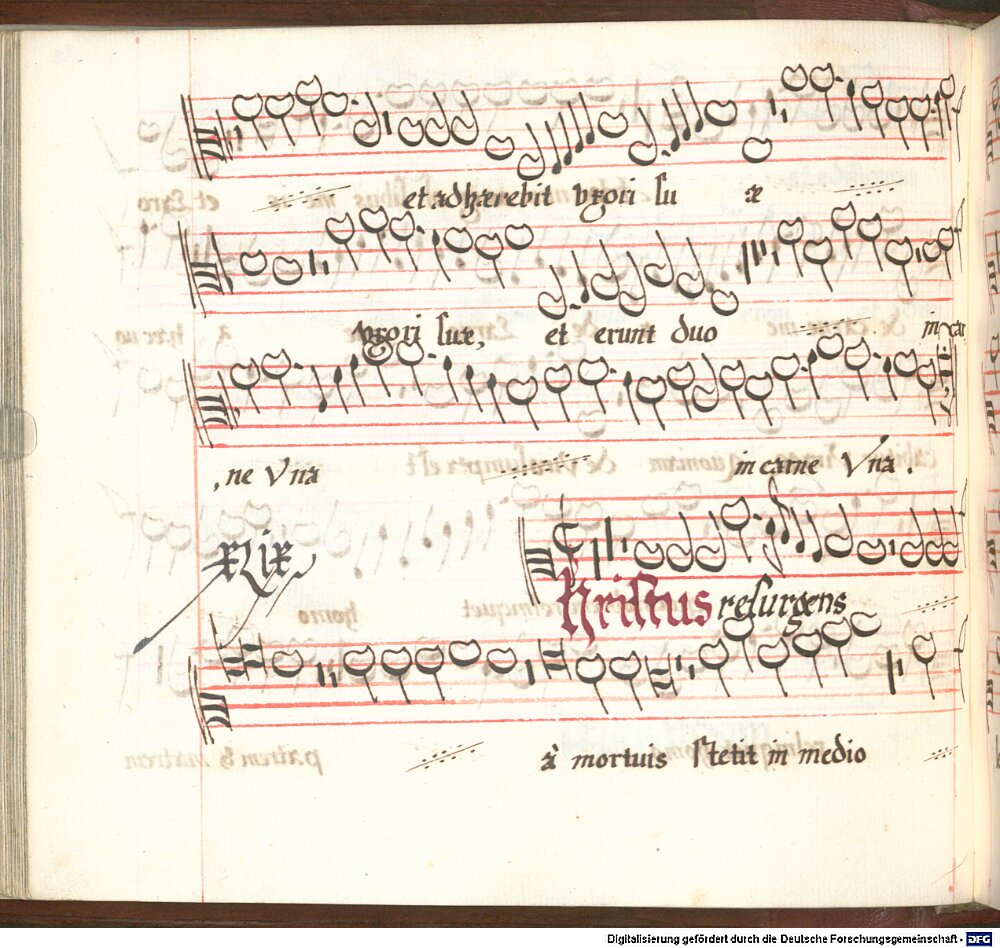 et adhærebit vxori su æ
vxori suæ, et erunt duo in car
, ne Vna in carne Vna .
xLix
Christus resurgens
à mortuis stetit in medio
Digitalisierung gefördert durch die Deutsche Forschungsgemeinschaft - DFG